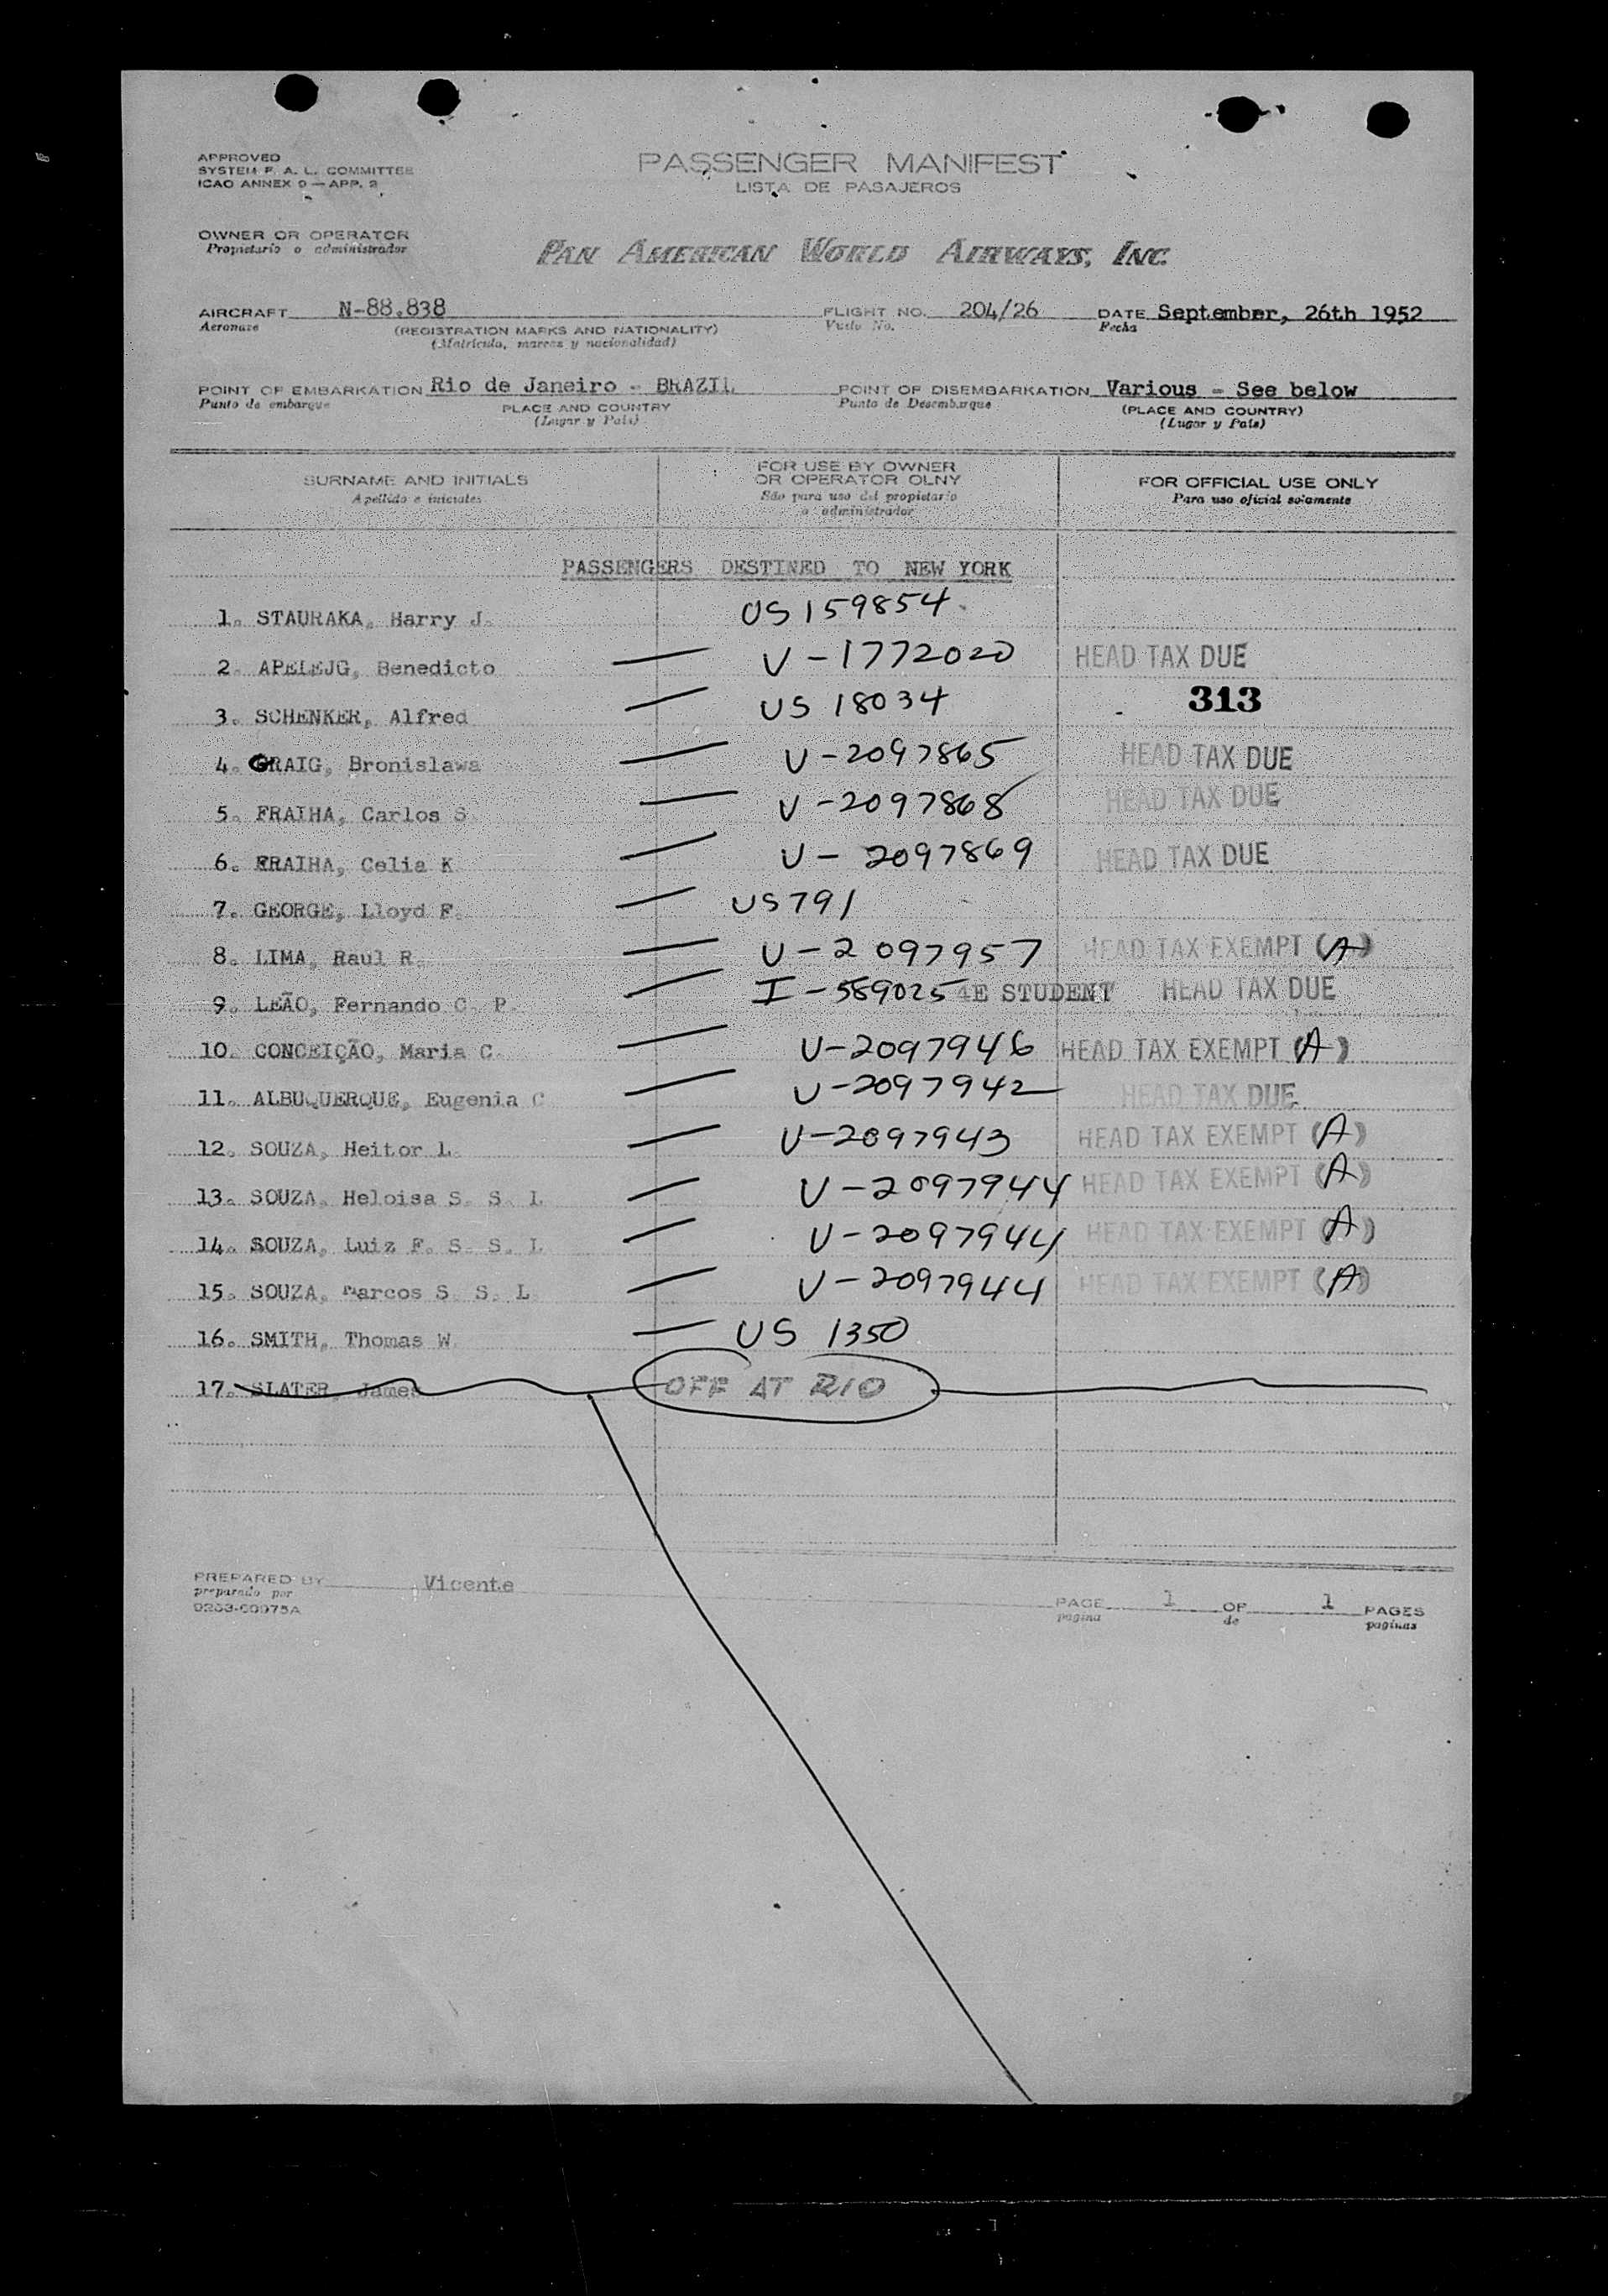 APPROVED
SYSTEM F. A. L. COMMITTEE
ICAO ANNEX 9 — APP. 2
PASSENGER MANIFEST
LISTA DE PASAJEROS
OWNER OR OPERATOR
Propietario o administrador
PAN AMERICAN WORLD AIRWAYS, INC.
AIRCRAFT N-88.838 FLIGHT NO. 204/26 DATE September, 26th 1952
Aeronave (REGISTRATION MARKS AND NATIONALITY) Vuelo No. Fecha
(Matrícula, marcas y nacionalidad)
POINT OF EMBARKATION Rio de Janeiro - BRAZIL POINT OF DISEMBARKATION Various - See below
Punto de embarque PLACE AND COUNTRY Punto de Desembarque (PLACE AND COUNTRY)
(Lugar y País) (Lugar y País)
SURNAME AND INITIALS FOR USE BY OWNER OR OPERATOR OLNY FOR OFFICIAL USE ONLY
Apellido e iniciales São para uso del propietario o administrador Para uso oficial solamente
PASSENGERS DESTINED TO NEW YORK
1. STAURAKA, Harry J. US 159854
2. APELEJG, Benedicto — V-1772020 HEAD TAX DUE
3. SCHENKER, Alfred — US 18034 313
4. GRAIG, Bronislawa — V-2097865 HEAD TAX DUE
5. FRAIHA, Carlos S — V-2097868 HEAD TAX DUE
6. FRAIHA, Celia K — V-2097869 HEAD TAX DUE
7. GEORGE, Lloyd F. — US 791
8. LIMA, Raul R. — V-2097957 HEAD TAX EXEMPT (A)
9. LEÃO, Fernando C. P. — I-589025 4E STUDENT HEAD TAX DUE
10. CONCEIÇÃO, Maria C. — V-2097946 HEAD TAX EXEMPT (A)
11. ALBUQUERQUE, Eugenia C — V-2097942 HEAD TAX DUE
12. SOUZA, Heitor L. — V-2097943 HEAD TAX EXEMPT (A)
13. SOUZA, Heloisa S. S. L — V-2097944 HEAD TAX EXEMPT (A)
14. SOUZA, Luiz F. S. S. L — V-2097944 HEAD TAX EXEMPT (A)
15. SOUZA, Marcos S. S. L — V-2097944 HEAD TAX EXEMPT (A)
16. SMITH, Thomas W. — US 1350
17. SLATER, James OFF AT RIO
PREPARED BY Vicente PAGE 1 OF 1 PAGES
preparado por pagina de paginas
0263-00975A